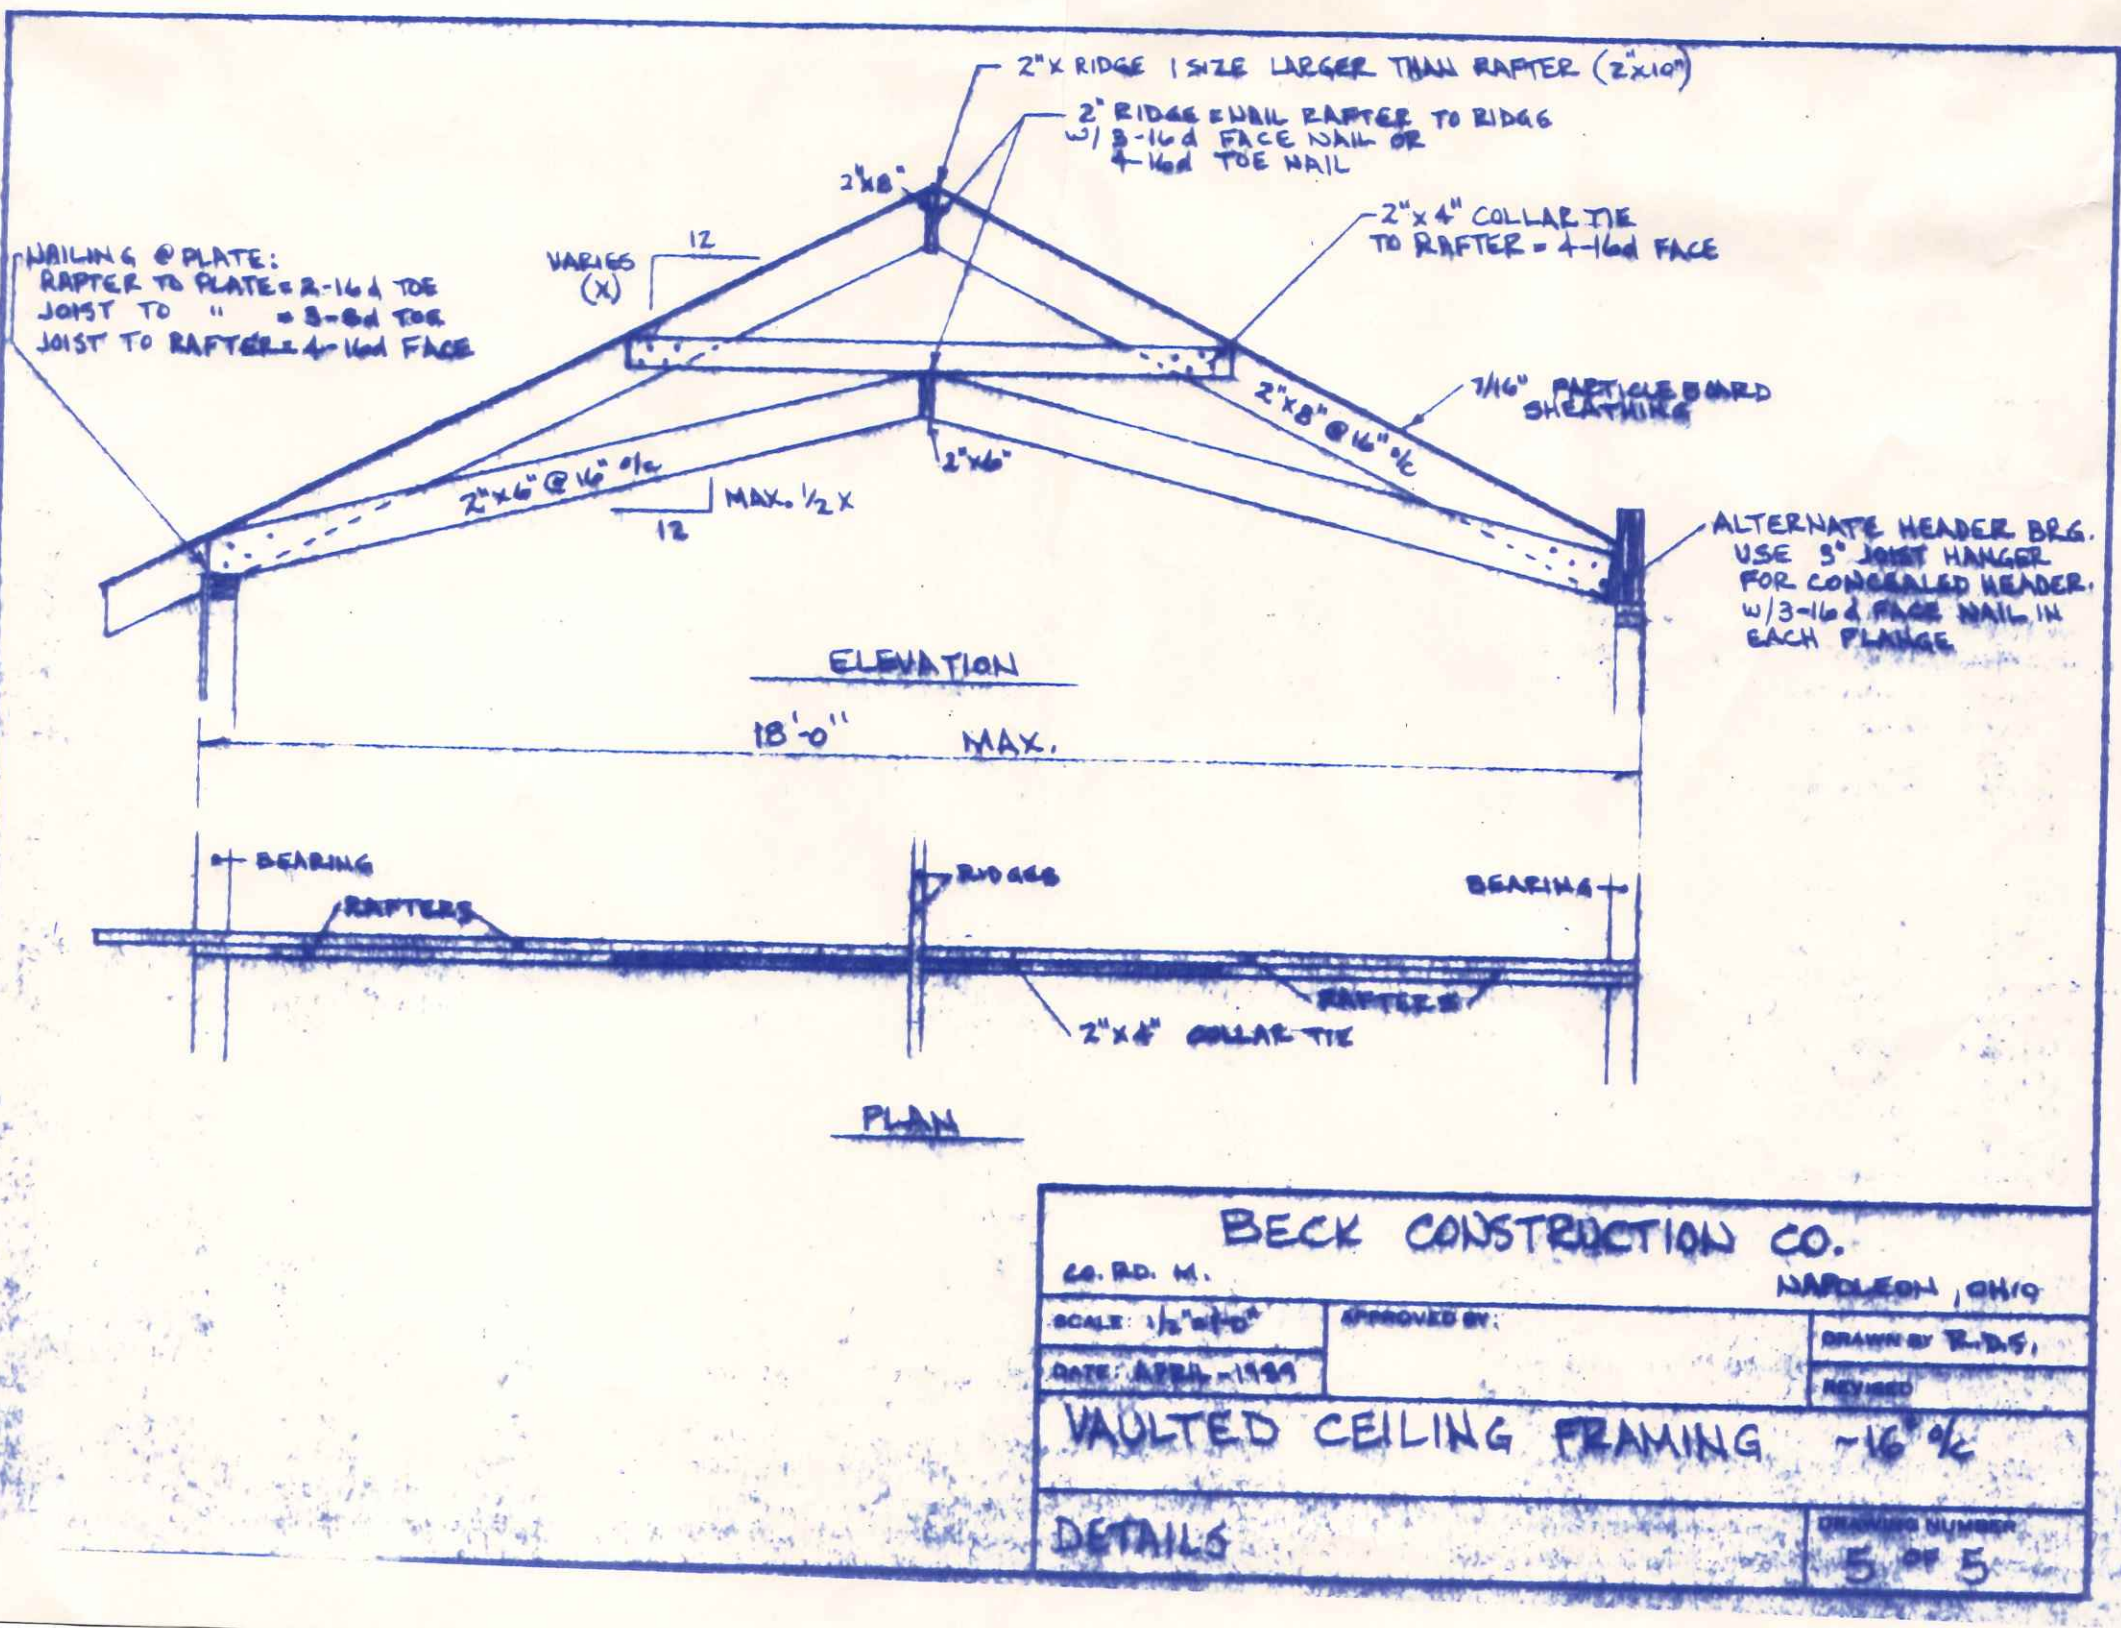 2" X RIDGE 1 SIZE LARGER THAN RAFTER (2"x10")
2" RIDGE = NAIL RAFTER TO RIDGE
W/ 3-16d FACE NAIL OR
4-16d TOE NAIL
2"x8"
2"x4" COLLAR TIE
TO RAFTER = 4-16d FACE
NAILING @ PLATE:
RAFTER TO PLATE = 2-16d TOE
JOIST TO " = 3-8d TOE
JOIST TO RAFTER = 4-16d FACE
VARIES
(X)
12
7/16" PARTICLE BOARD
SHEATHING
2"x8" @ 16" o/c
2"x6" @ 16" o/c
2"x6"
MAX. 1/2 X
12
ALTERNATE HEADER BRG.
USE 3" JOIST HANGER
FOR CONCEALED HEADER.
W/3-16d FACE NAIL IN
EACH FLANGE
ELEVATION
18'-0" MAX.
BEARING
RIDGES
BEARING
RAFTERS
RAFTERS
2"x4" COLLAR TIE
PLAN
BECK CONSTRUCTION CO.
CO. RD. M.
NAPOLEON, OHIO
SCALE: 1/2"=1'-0"
APPROVED BY:
DRAWN BY R.D.S.
DATE: APRIL-1989
REVISED
VAULTED CEILING FRAMING -16" o/c
DETAILS
DRAWING NUMBER
5 OF 5